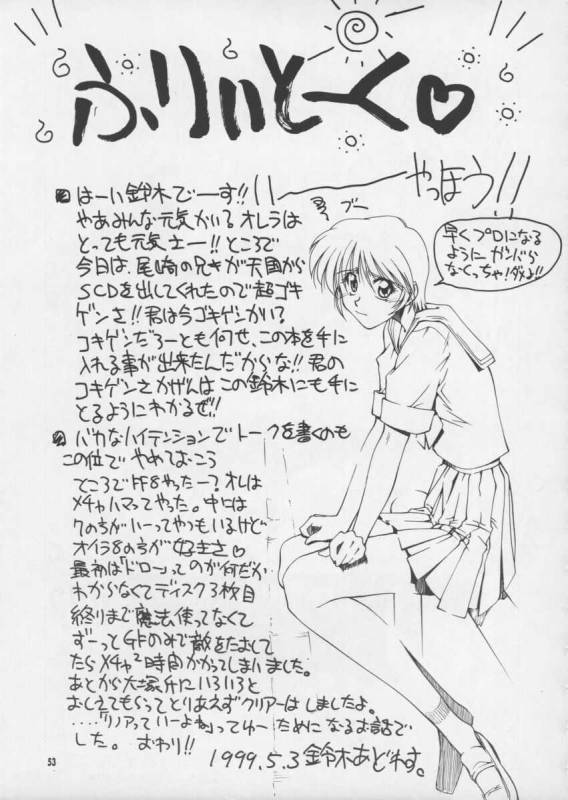 ふりいとーく♡
はーい鈴木でーす!!
やっほう!!
やあみんな元気かい?オレらは
とっても元気さー!!ところで
今日は、尾崎の兄きが天国から
SCDを出してくれたので超ゴキ
ゲンさ!!君は今ゴキゲンかい?
コキゲンだろーとも何せ、この本を手に
入れる事が出来たんだからな!!君の
コキゲンさかげんはこの鈴木にも手に
とるようにわかるぜ!!
バカなハイテンションでトークを書くのも
この位でやめておこう
ところでFF8やったー?オレは
メチャハマってやった。中には
7の方がいーってやつもいるけど
オイラ8の方が好きさ♡
最初は「ドロー」ってのが何だか
わからなくてディスク3枚目
終りまで魔法使ってなくて
ずーっとGFのみで敵をたおして
たらメチャ2時間かかってしまいました。
あとから大塚チにいろいろと
おしえてもらってとりあえずクリアーはしましたよ。
‥‥「リノアっていーよね」ってゆーためになるお話で
した。おわり!!
1999.5.3 鈴木あどれす。
ブー
早くプロになる
ようにガンバら
なくっちゃ!ダメよ!!
53